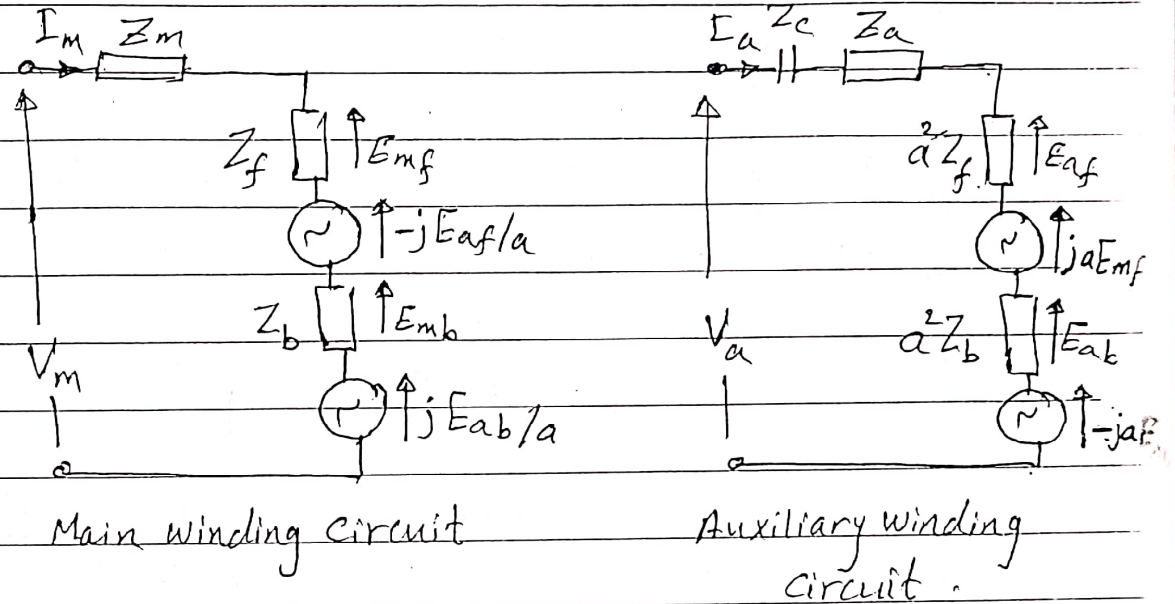 Im Zm
Zf Emf
-jEaf/a
Zb Emb
Vm
jEab/a
Main winding circuit
Ia Zc Za
a²Zf Eaf
jaEmf
a²Zb Eab
Va
-jaE
Auxiliary winding
circuit.